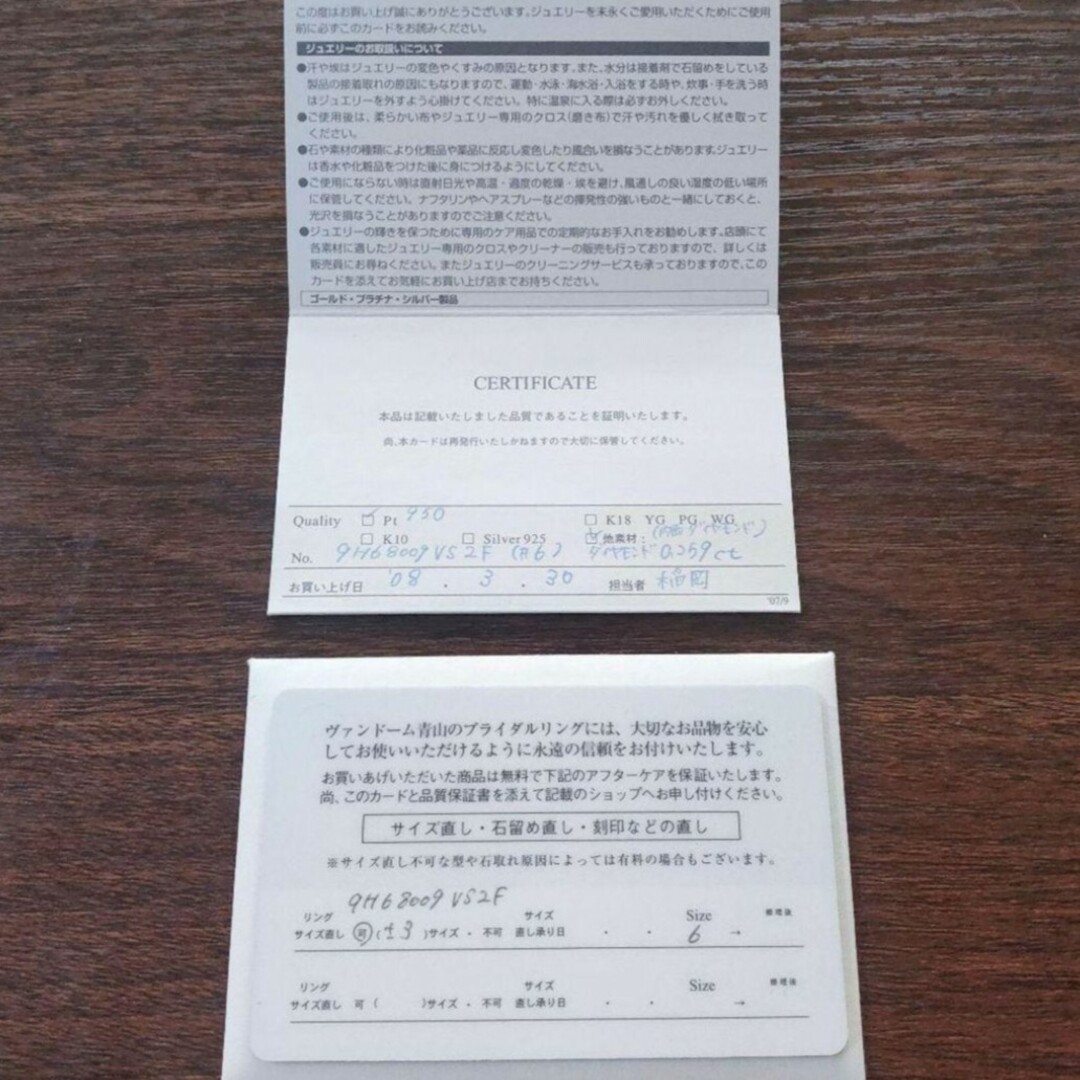 この度はお買い上げ誠にありがとうございます。ジュエリーを末永くご愛用いただくためにご使用
前に必ずこのカードをお読みください。
ジュエリーのお取扱いについて
●汗や埃はジュエリーの変色やくすみの原因となります。また、水分は接着剤で石留めをしている
製品の接着取れの原因にもなりますので、運動・水泳・海水浴・入浴をする時や、炊事・手を洗う時
はジュエリーを外すよう心掛けてください。特に温泉に入る際は必ずお外しください。
●ご使用後は、柔らかい布やジュエリー専用のクロス(磨き布)で汗や汚れを優しく拭き取って
ください。
●石や素材の種類により化粧品や薬品に反応し変色したり風合いを損なうことがあります。ジュエリー
は香水や化粧品をつけた後に身につけるようにしてください。
●ご使用にならない時は直射日光や高温・過度の乾燥・埃を避け、風通しの良い湿度の低い場所
に保管してください。ナフタリンやヘアスプレーなどの揮発性の強いものと一緒にしておくと、
光沢を損なうことがありますのでご注意ください。
●ジュエリーの輝きを保つために専用のケア用品での定期的なお手入れをお勧めします。店頭にて
各素材に適したジュエリー専用のクロスやクリーナーの販売も行っておりますので、詳しくは
販売員にお尋ねください。またジュエリーのクリーニングサービスも承っておりますので、この
カードを添えてお気軽にお買い上げ店までお持ちください。
ゴールド・プラチナ・シルバー製品
CERTIFICATE
本品は記載いたしました品質であることを証明いたします。
尚、本カードは再発行いたしかねますので大切に保管してください。
Quality ☑ Pt 950 □ K18 YG PG WG
□ K10 □ Silver 925 ☑ 他素材: (内面ダイヤモンド)
No. 9H68009 VS2F (#6) ダイヤモンド 0.259ct
お買い上げ日 '08 . 3 . 30 担当者 稲岡
'07/9
ヴァンドーム青山のブライダルリングには、大切なお品物を安心
してお使いいただけるように永遠の信頼をお付けいたします。
お買いあげいただいた商品は無料で下記のアフターケアを保証いたします。
尚、このカードと品質保証書を添えて記載のショップへお申し付けください。
サイズ直し・石留め直し・刻印などの直し
※サイズ直し不可な型や石取れ原因によっては有料の場合もございます。
9H68009 VS2F
リング サイズ Size 修理後
サイズ直し 可 (±3)サイズ・不可 直し承り日 ・ ・ 6 →
リング サイズ Size 修理後
サイズ直し 可 ( )サイズ・不可 直し承り日 ・ ・ →